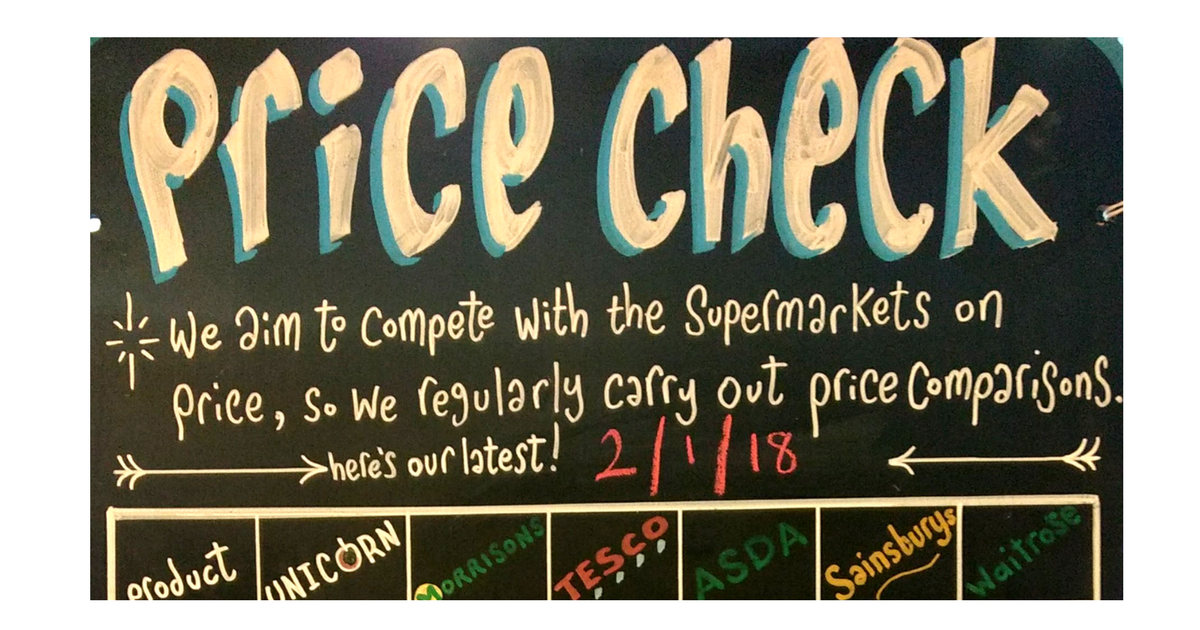 Price Check
We aim to compete with the Supermarkets on
price, so we regularly carry out price comparisons.
here's our latest! 2/1/18
product UNICORN MORRISONS TESCO ASDA Sainsburys Waitrose